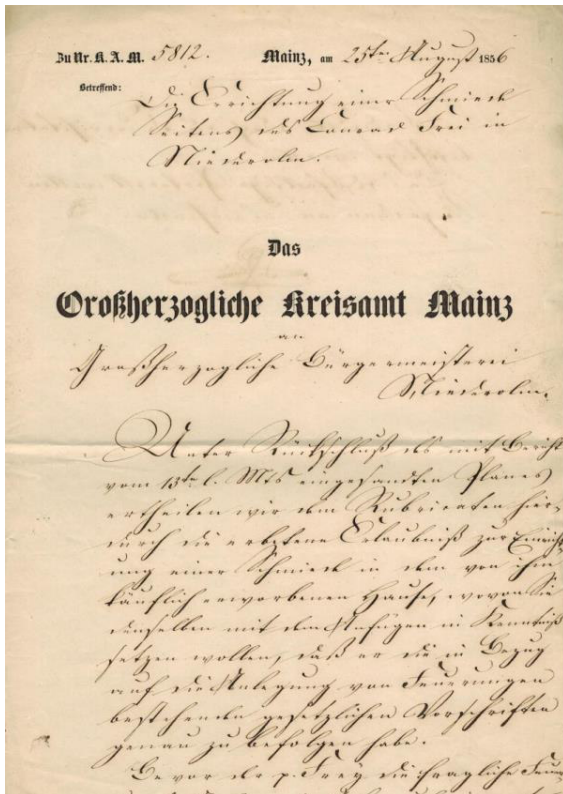 Zu Nr. K. A. M. 5812. Mainz, am 25ten August 1856
Betreffend:
Die Errichtung einer Schmiede
Seitens des Conrad Frei in
Niederolm.
Das
Großherzogliche Kreisamt Mainz
an
Großherzogliche Bürgermeisterei
Niederolm.
Unter Rückschluß des mit Bericht
vom 13ten l. Mts eingesandten Planes
ertheilen wir dem Rubricaten hier-
durch die erbetene Erlaubniß zur Einricht-
ung einer Schmiede in dem von ihm
käuflich erworbenen Hause, wovon Sie
denselben mit dem Anfügen in Kenntniß
setzen wollen, daß er die in Bezug
auf die Anlegung von Feuerungen
bestehenden gesetzlichen Vorschriften
genau zu befolgen habe.
Bevor der p. Frey die fragliche Feue